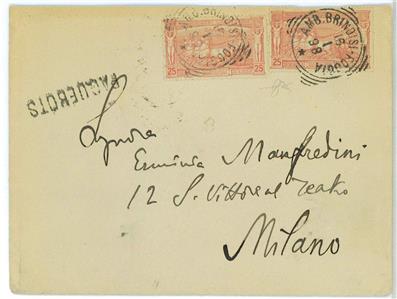 AMB. BRINDISI-FOGGIA
AMB. BRINDISI-FOGGIA
9 1 98
25 25 25
PAQUEBOTS
Signora
Erminia Manfredini
12 S. Vittore al Teatro
Milano